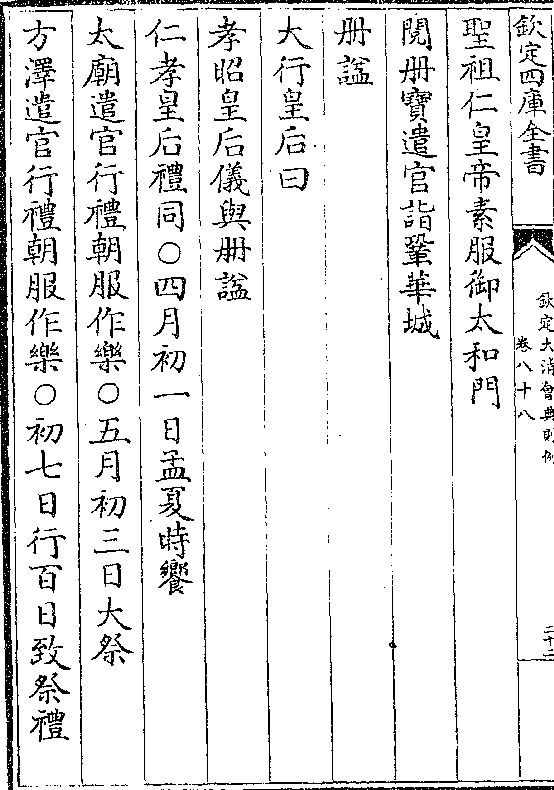 欽定四庫全書
欽定大清會典則例
卷八十八
二十二
聖祖仁皇帝素服御太和門
閱册寶遣官詣鞏華城
册諡
大行皇后曰
孝昭皇后儀與册諡
仁孝皇后禮同○四月初一日孟夏時饗
太廟遣官行禮朝服作樂○五月初三日大祭
方澤遣官行禮朝服作樂○初七日行百日致祭禮